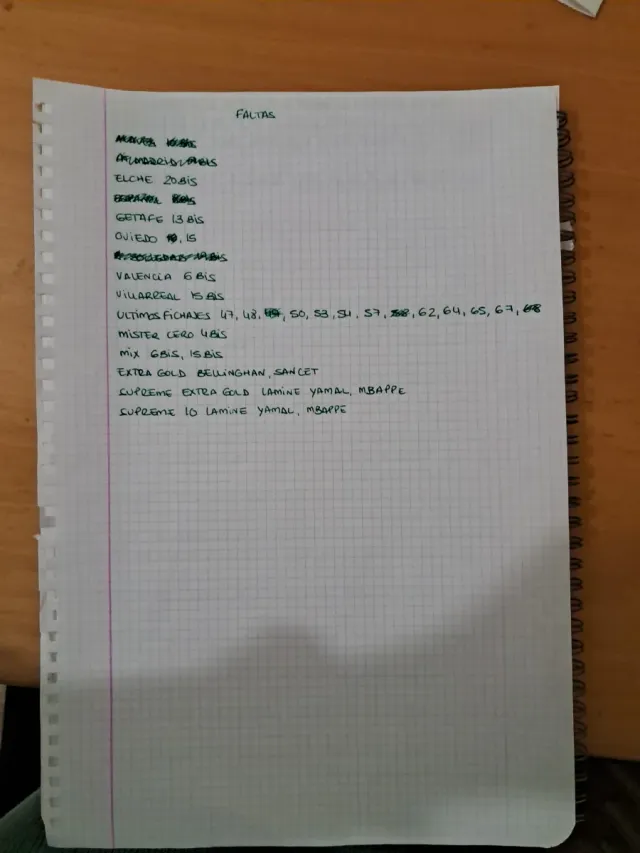 FALTAS
ELCHE 20BIS
GETAFE 13 BIS
OVIEDO , 15
VALENCIA 6 BIS
VILLARREAL 15 BIS
ULTIMOS FICHAJES 47, 48, , 50, 53, 54, 57, , 62, 64, 65, 67,
MISTER CERO 4BIS
MIX 6BIS, 15BIS
EXTRA GOLD BELLINGHAN, SANCET
SUPREME EXTRA GOLD LAMINE YAMAL, MBAPPE
SUPREME 10 LAMINE YAMAL, MBAPPE